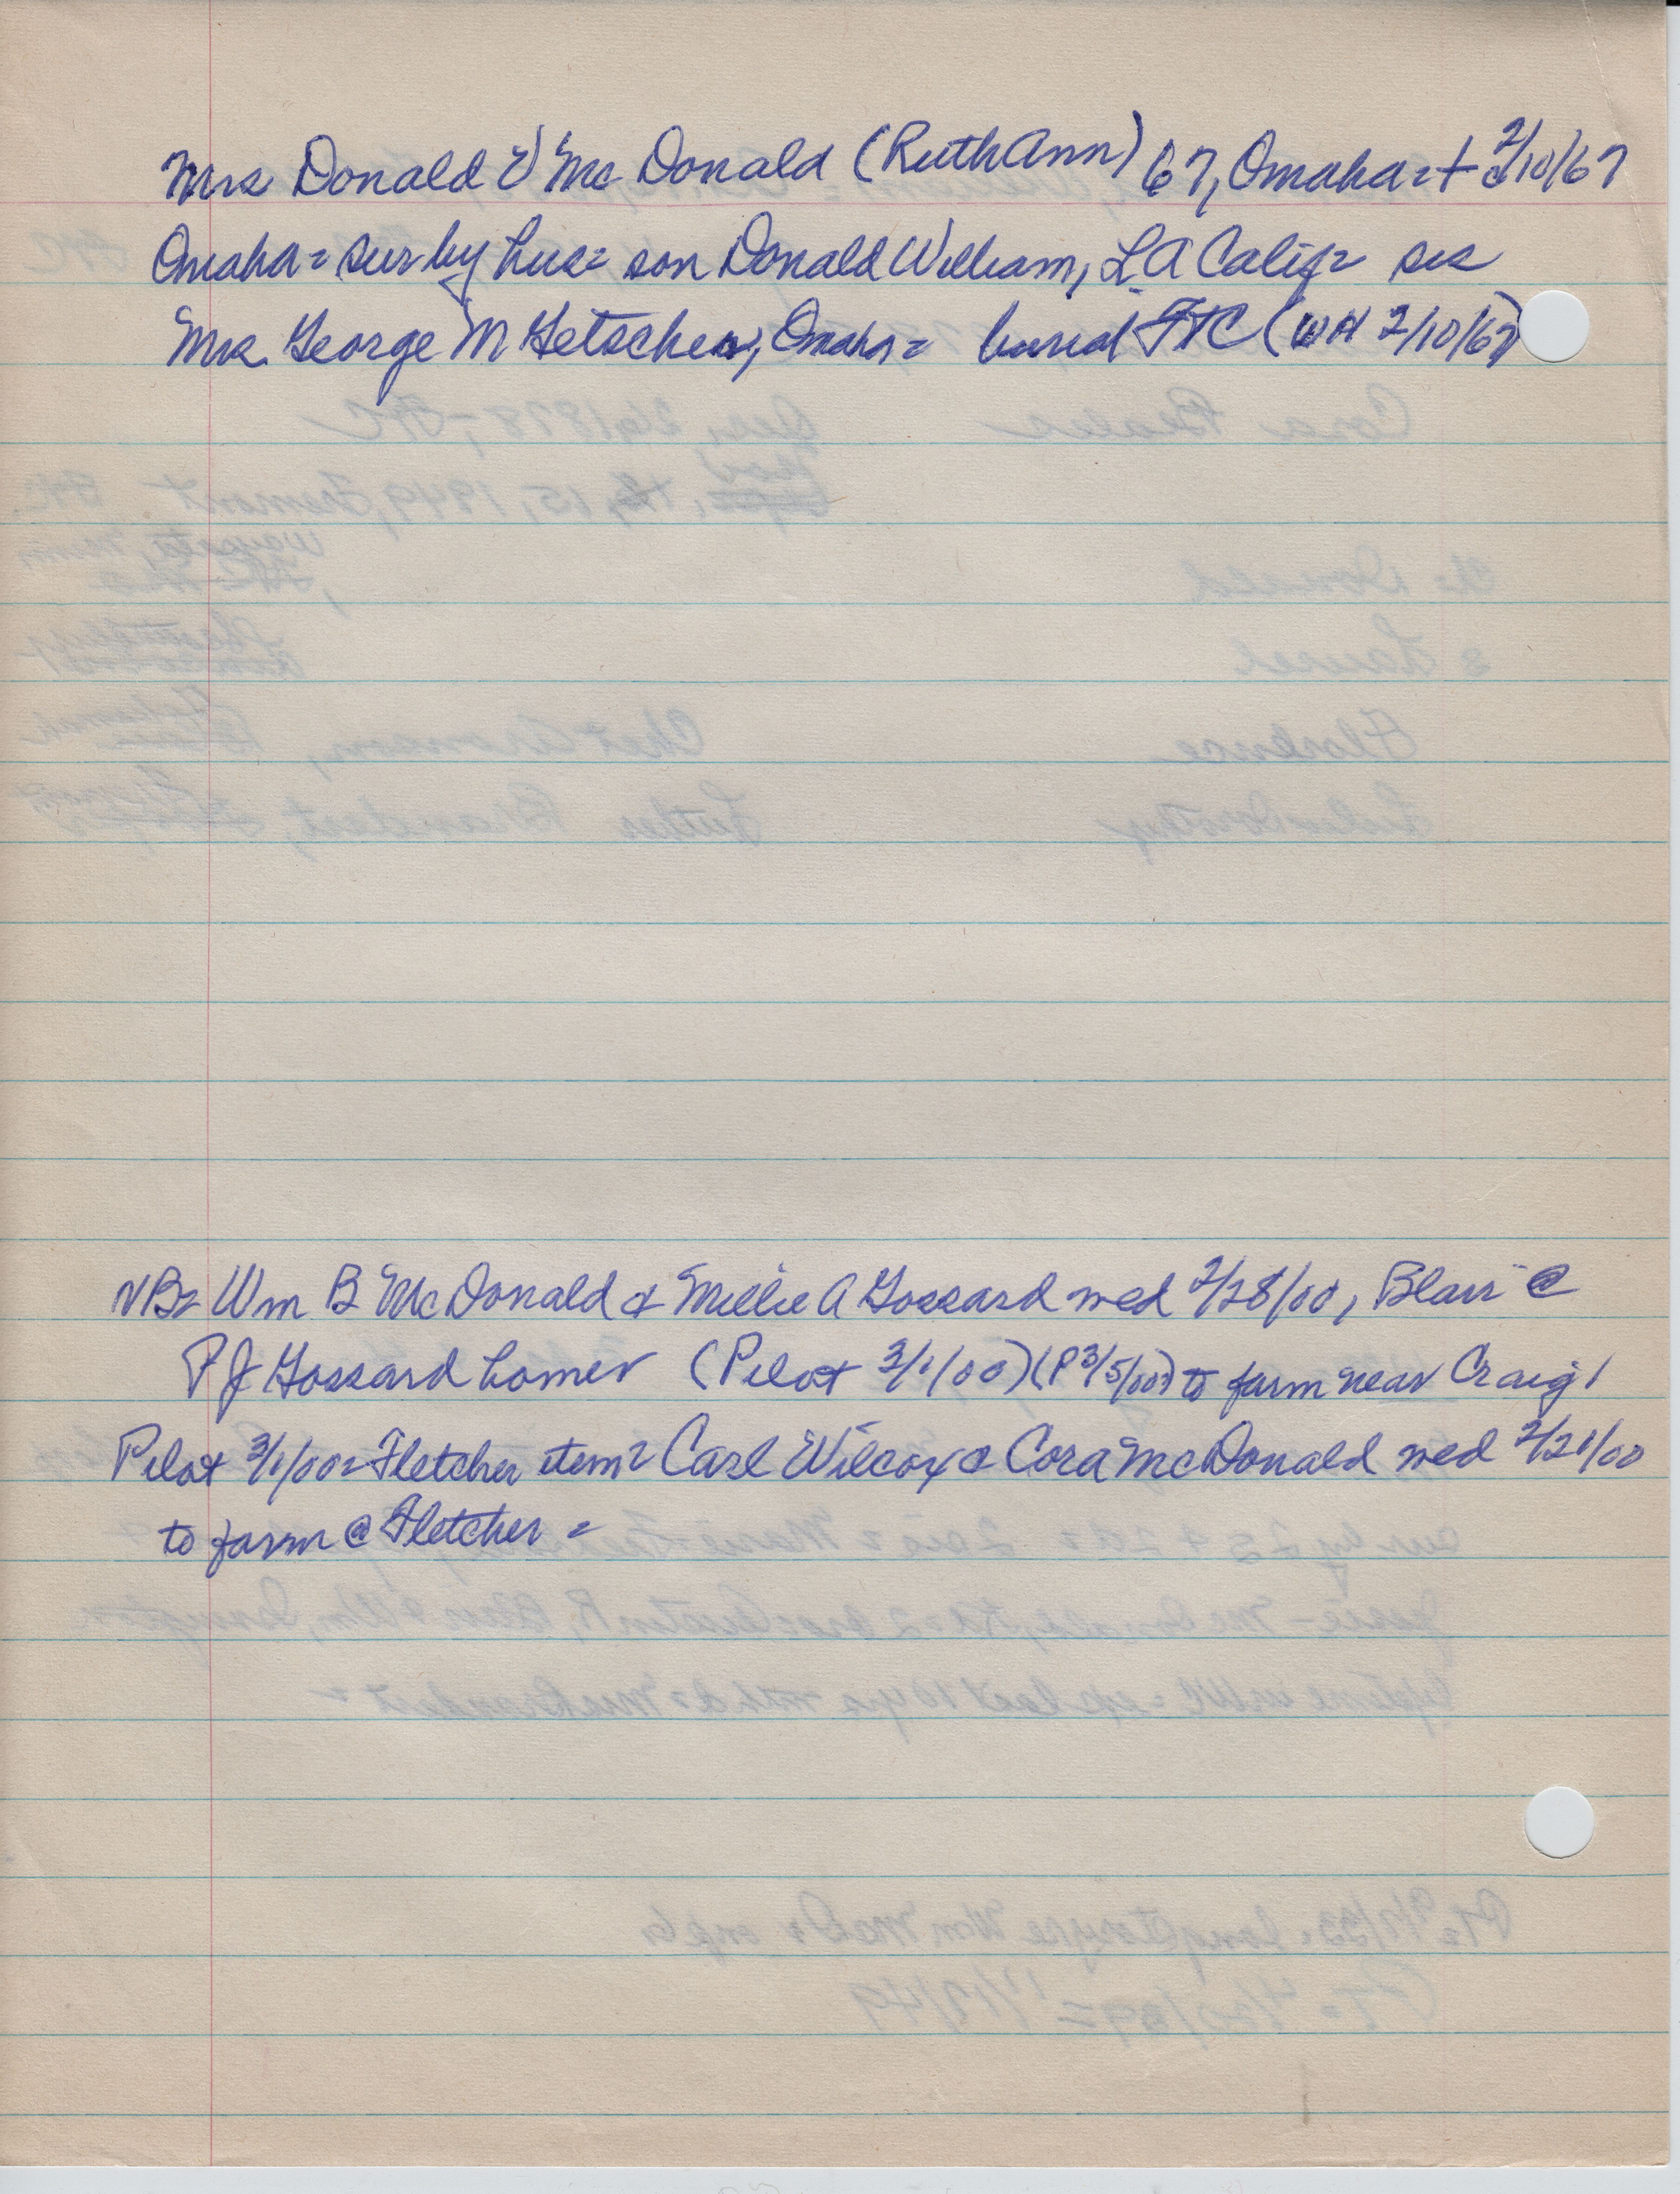 Mrs Donald E McDonald (Ruth Ann) 67, Omaha = + 2/10/67
Omaha = sur by hus = son Donald William, LA Calif = sis
Mrs. George M Getscher, Omaha = buried FTC (WH 2/10/67)
NB = Wm B McDonald & Millie A Gossard wed 2/28/00, Blair @
P J Gossard home = (Pilot 3/1/00) (P 3/5/00) to farm near Craig /
Pilot 3/1/00 = Fletcher item = Carl Wilcox & Cora McDonald wed 2/21/00
to farm @ Fletcher =